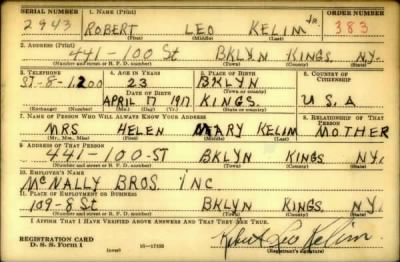 SERIAL NUMBER 1. NAME (Print) ORDER NUMBER
2943 ROBERT LEO KELIM Jr. 383
(First) (Middle) (Last)
2. ADDRESS (Print)
441-100 St BKLYN KINGS N.Y.
(Number and street or R. F. D. number) (Town) (County) (State)
3. TELEPHONE 4. AGE IN YEARS 5. PLACE OF BIRTH 6. COUNTRY OF CITIZENSHIP
ST-8-1200 23 BKLYN
DATE OF BIRTH (Town or county)
APRIL 17 1917 KINGS U.S.A
(Exchange) (Number) (Mo.) (Day) (Yr.) (State or country)
7. NAME OF PERSON WHO WILL ALWAYS KNOW YOUR ADDRESS 8. RELATIONSHIP OF THAT PERSON
MRS HELEN MARY KELIM MOTHER
(Mr., Mrs., Miss) (First) (Middle) (Last)
9. ADDRESS OF THAT PERSON
441-100-ST BKLYN KINGS N.Y.
(Number and street or R. F. D. number) (Town) (County) (State)
10. EMPLOYER'S NAME
McNALLY BROS. INC
11. PLACE OF EMPLOYMENT OR BUSINESS
109-8 St BKLYN KINGS N.Y.
(Number and street or R. F. D. number) (Town) (County) (State)
I AFFIRM THAT I HAVE VERIFIED ABOVE ANSWERS AND THAT THEY ARE TRUE.
REGISTRATION CARD
D. S. S. Form 1 (over) 16-17105 Robert Leo Kelim
(Registrant's signature)